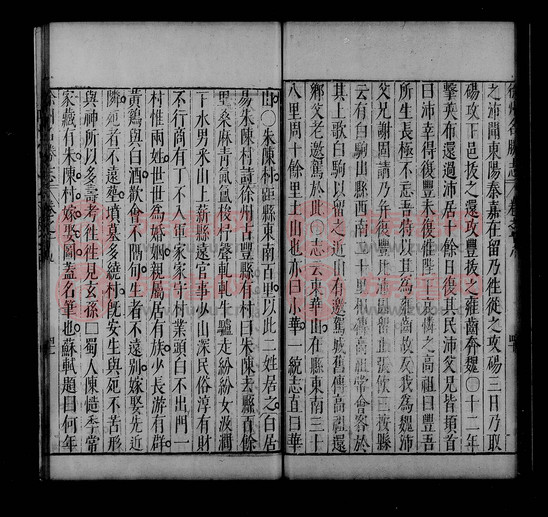 之沛聞東陽奉嘉在留乃往從之攻碭三日乃取
碭攻下邑拔之還攻豐拔之雍齒奔魏〇十二年
擊英布還過沛居十餘日復其民沛父兄皆頓首
曰沛幸得復豐未復惟陛下哀憐之高祖曰豐吾
所生長極不忘吾特以其為雍齒故反我為魏沛
父兄謝固請乃并復豐比沛
云有白駒山縣西南十
其上歌白駒以留之近山有邀駕城舊傳高祖還
鄉父老邀駕於此〇志云東華山在縣東南三十
八里周十餘里土山也亦曰小華一統志直曰華
山〇朱陳村距縣東南百里以此二姓居之白居
易朱陳村詩徐州古豐縣有村曰朱陳去縣百餘
里桑麻青氛氳梭聲軋軋牛驢走紛紛女汲澗
下水男采山上薪縣遠官事少山深民俗淳有財
不行商有丁不入軍家家守村業頭白不出門一
村惟兩姓世世為婚姻親屬居有族少長游有群
黃鷄與白酒歡會不隔旬生者不遠別嫁娶先近
隣死者不遠塟墳墓多繞村既安生與死不苦形
與神所以多壽考往往見玄孫□蜀人陳慥季常
家藏有朱陳村嫁娶圖蓋名筆也蘇軾題曰何年